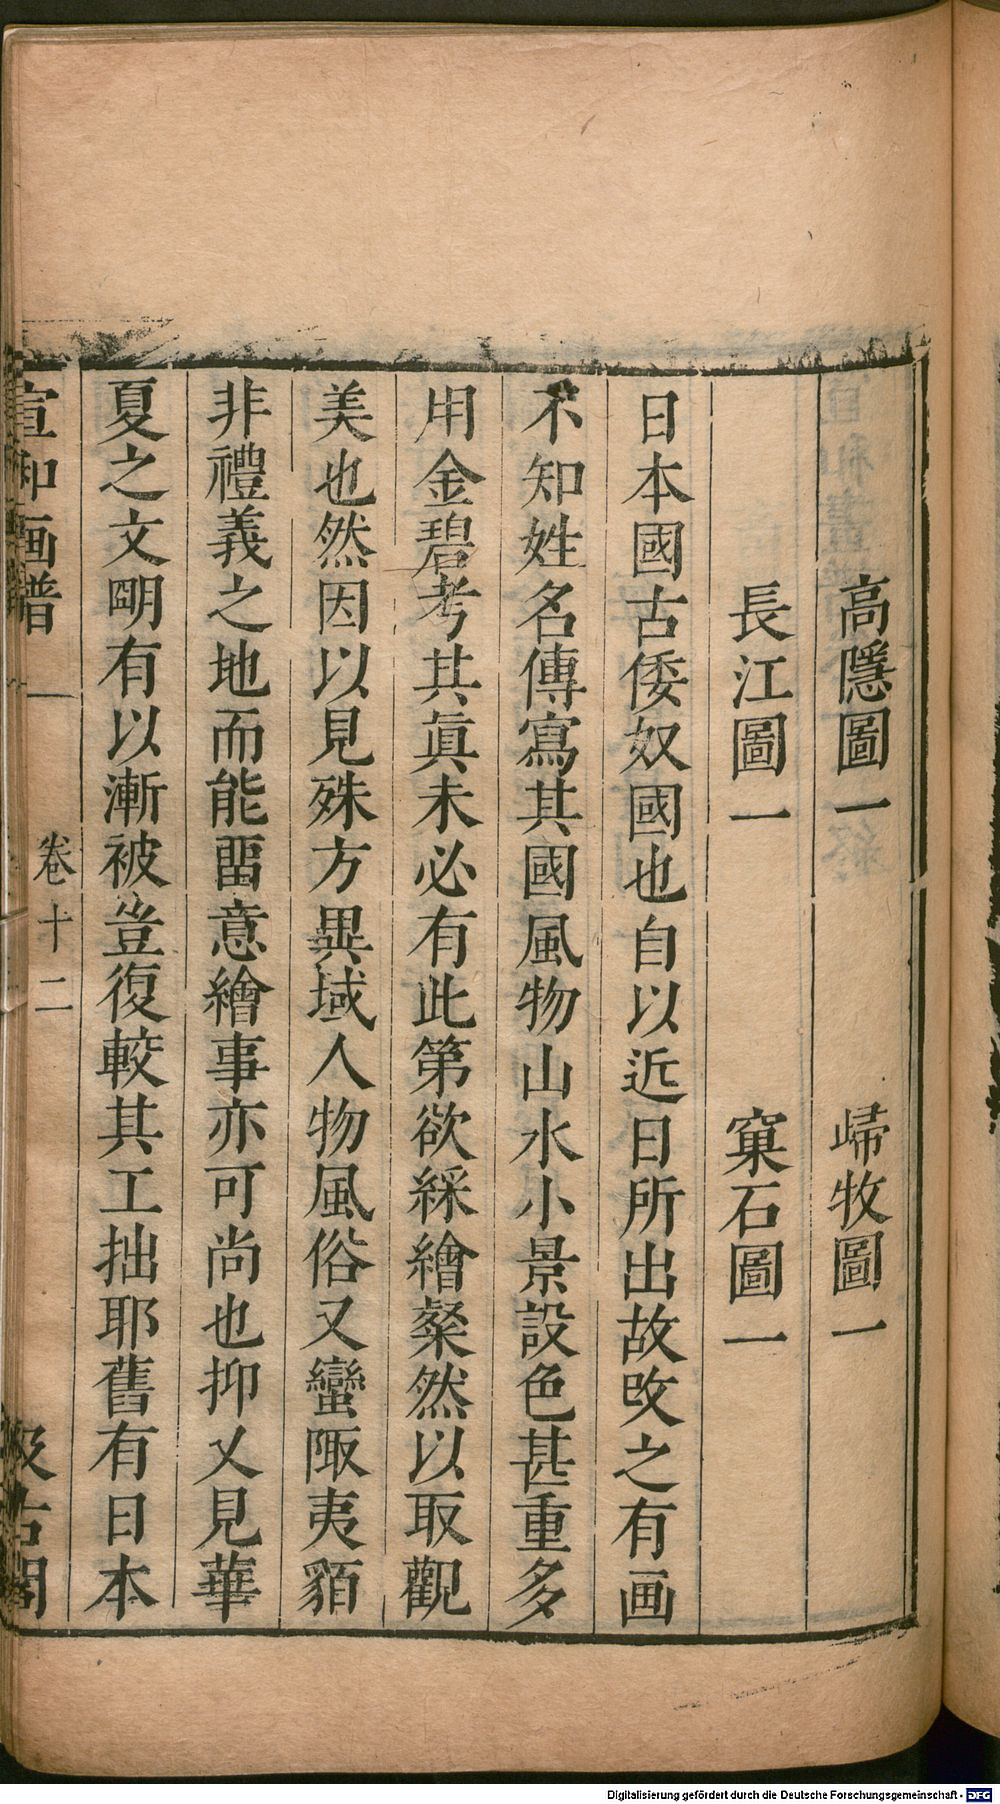 高隱圖一　歸牧圖一
長江圖一　窠石圖一
日本國古倭奴國也自以近日所出故改之有画
不知姓名傳寫其國風物山水小景設色甚重多
用金碧考其眞未必有此第欲綵繪粲然以取觀
美也然因以見殊方異域人物風俗又蠻陬夷貊
非禮義之地而能畱意繪事亦可尚也抑又見華
夏之文明有以漸被豈復較其工拙耶舊有日本
宣和画譜　卷十二　汲古閣
Digitalisierung gefördert durch die Deutsche Forschungsgemeinschaft - DFG